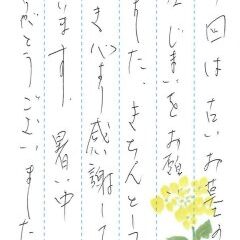 回は古いお墓の
じまいをお願い
ました。きちんと
き心より感謝して
います。暑い中
がとうございました